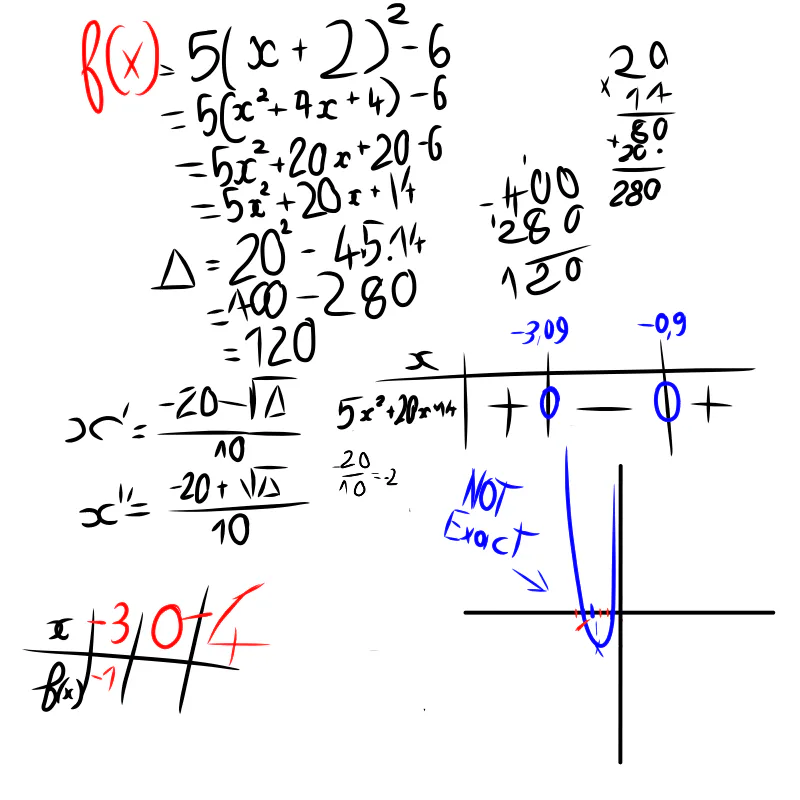 f(x) = 5(x + 2)² - 6
= 5(x² + 4x + 4) - 6
= 5x² + 20x + 20 - 6
= 5x² + 20x + 14
Δ = 20² - 4.5.14
= 400 - 280
= 120
20
x 14
80
+ 20.
280
- 400
280
120
x' = (-20 - √Δ) / 10
x'' = (-20 + √Δ) / 10
-20/10 = -2
-3,09 -0,9
x
5x² + 20x + 14 + 0 - 0 +
NOT
Exact
x -3 0 -4
f(x) -1